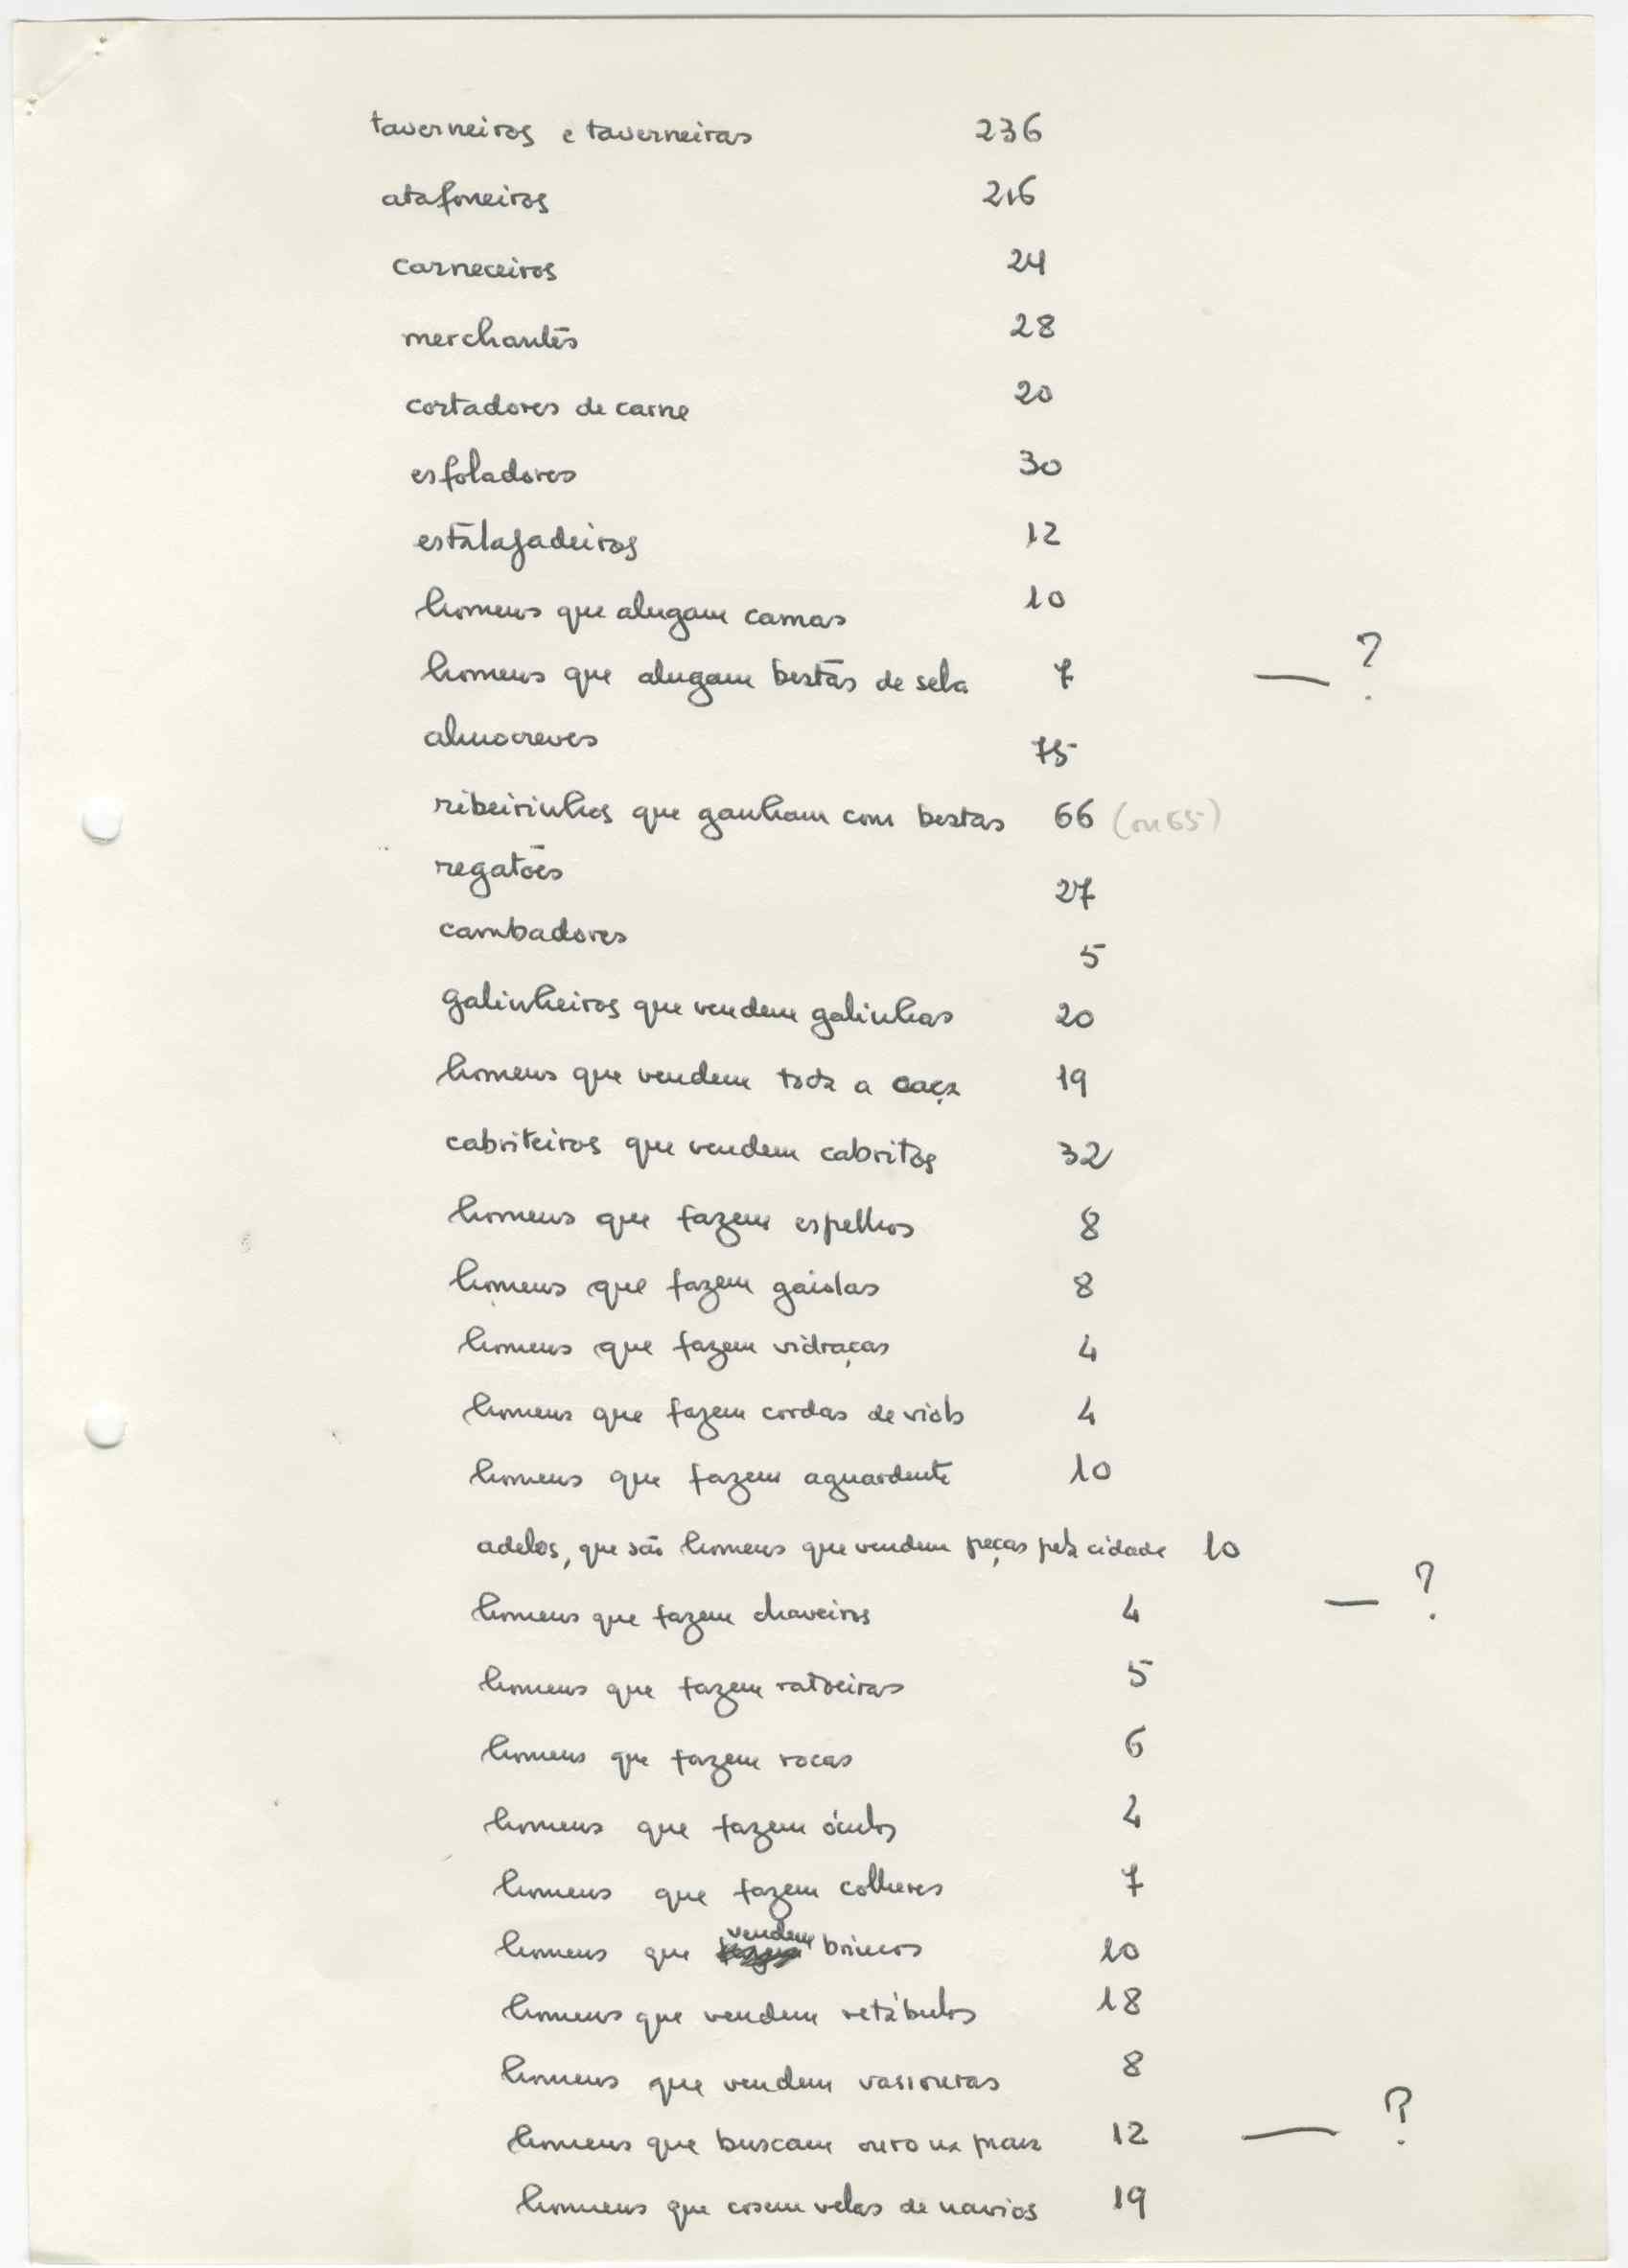 taverneiros e taverneiras 236
atafoneiros 216
carneceiros 24
merchantes 28
cortadores de carne 20
esfoladores 30
estalajadeiros 12
homens que alugam camas 10
homens que alugam bestas de sela 7 — ?
almocreves 75
ribeirinhos que ganham com bestas 66 (ou 65)
regatões 27
cambadores 5
galinheiros que vendem galinhas 20
homens que vendem toda a caça 19
cabriteiros que vendem cabritos 32
homens que fazem espelhos 8
homens que fazem gaiolas 8
homens que fazem vidraças 4
homens que fazem cordas de viola 4
homens que fazem aguardente 10
adelos, que são homens que vendem peças pela cidade 10
homens que fazem chaveiros 4 — ?
homens que fazem ratoeiras 5
homens que fazem rocas 6
homens que fazem óculos 4
homens que fazem colheres 7
homens que vendem brincos 10
homens que vendem retábulos 18
homens que vendem vassouras 8
homens que buscam ouro na praia 12 — ?
homens que cosem velas de navios 19